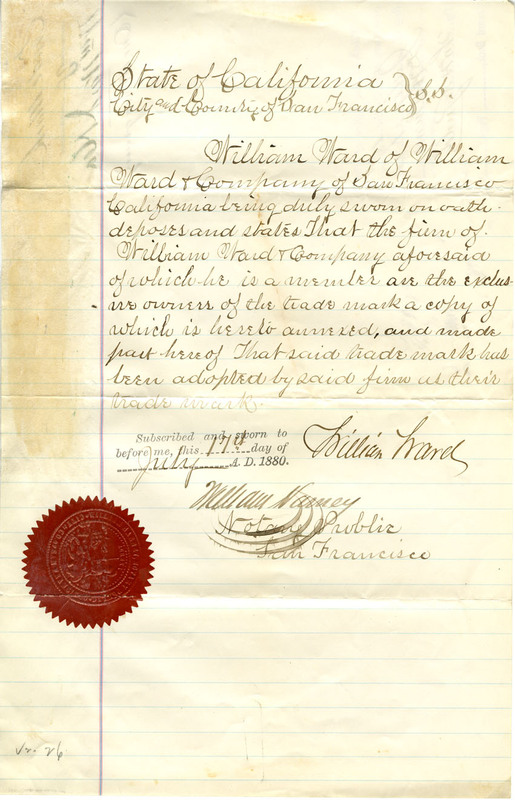 State of California } S.S.
City and County of San Francisco
William Ward of William
Ward & Company of San Francisco
California being duly sworn on oath
deposes and states That the firm of
William Ward & Company aforesaid
of which he is a member are the exclus-
ive owners of the trade mark a copy of
which is hereto annexed, and made
part hereof That said trade mark has
been adopted by said firm as their
trade mark.
Subscribed and sworn to
before me, this 17th day of
July A. D. 1880.
William Ward
William Varney
Notary Public
San Francisco